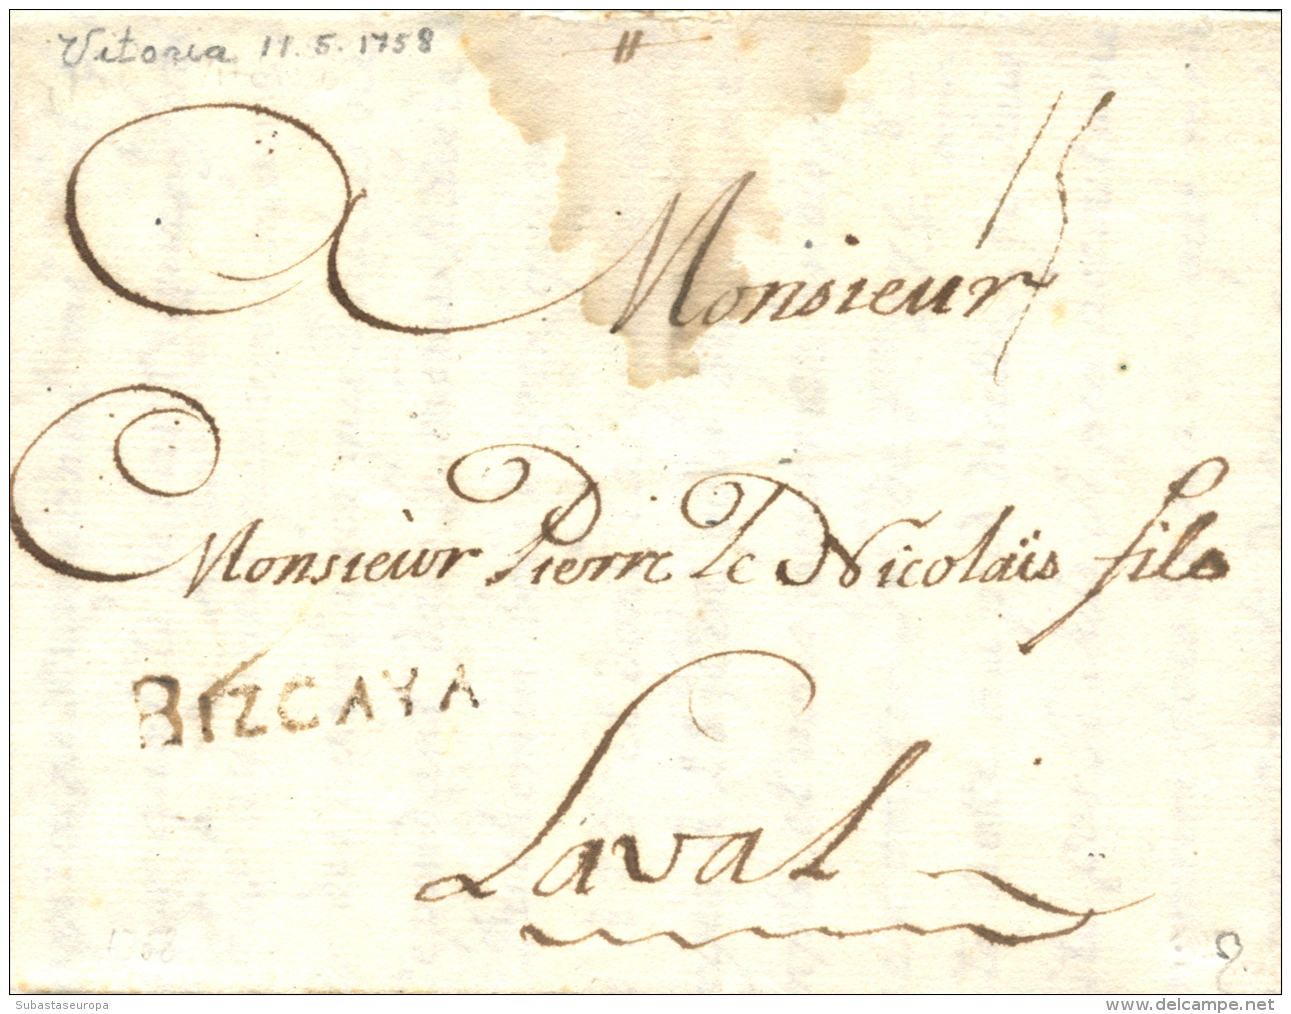 Vitoria 11.5.1758
A Monsieur
15
Monsieùr Pierre Le Nicolaïs fils
BIZCAYA
Laval
Subastaseuropa
www.delcampe.net